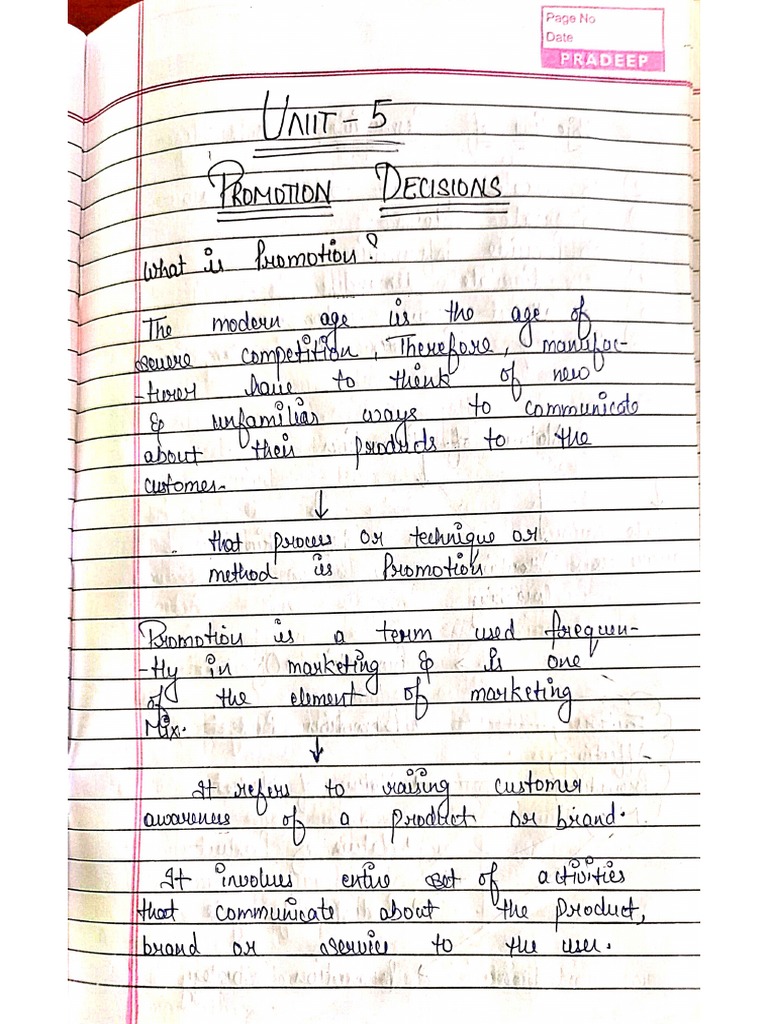 Page No
Date
PRADEEP
UNIT-5
PROMOTION DECISIONS
What is Promotion?
The modern age is the age of
severe competition, Therefore, manufac-
-turer have to think of new
& unfamiliar ways to communicate
about their products to the
customer.
↓
that process or technique or
method is Promotion
Promotion is a term used frequen-
-tly in marketing & is one
of the element of marketing
Mix.
↓
It refers to raising customer
awareness of a product or brand.
It involves entire set of activities
that communicate about the product,
brand or service to the user.